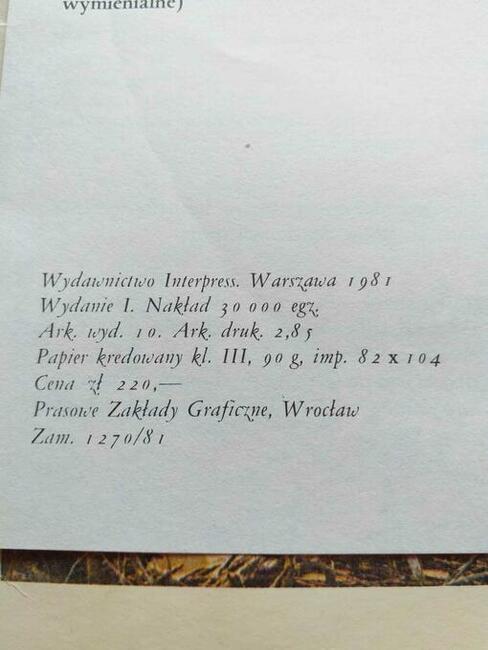 wymienialne)
Wydawnictwo Interpress. Warszawa 1981
Wydanie I. Nakład 30 000 egz.
Ark. wyd. 10. Ark. druk. 2,85
Papier kredowany kl. III, 90 g, imp. 82 x 104
Cena zł 220,—
Prasowe Zakłady Graficzne, Wrocław
Zam. 1270/81